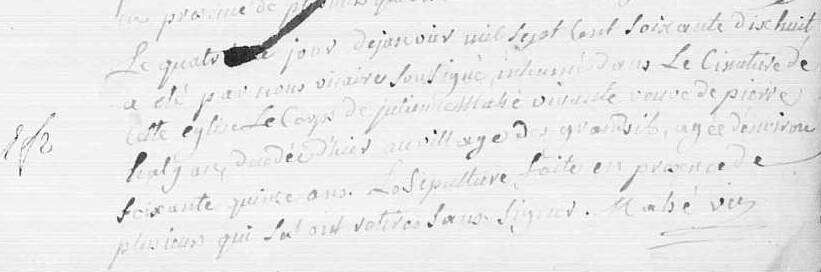 en presence de plusieurs
Le quatr jour dejanvier mil Sept Cent Soixante dixhuit
a été par nous vicaire Soussigné, inhumé dans Le Cimeture de
cette eglise Le Corps de julienne Mahé vivante veuve de pierre
decedée d'hier au village des grands agée d'environ
Soixante quinze ans. La Sepulture faite en presence de
plusieurs qui Se sont retirés Sans Signer. Mahé vic